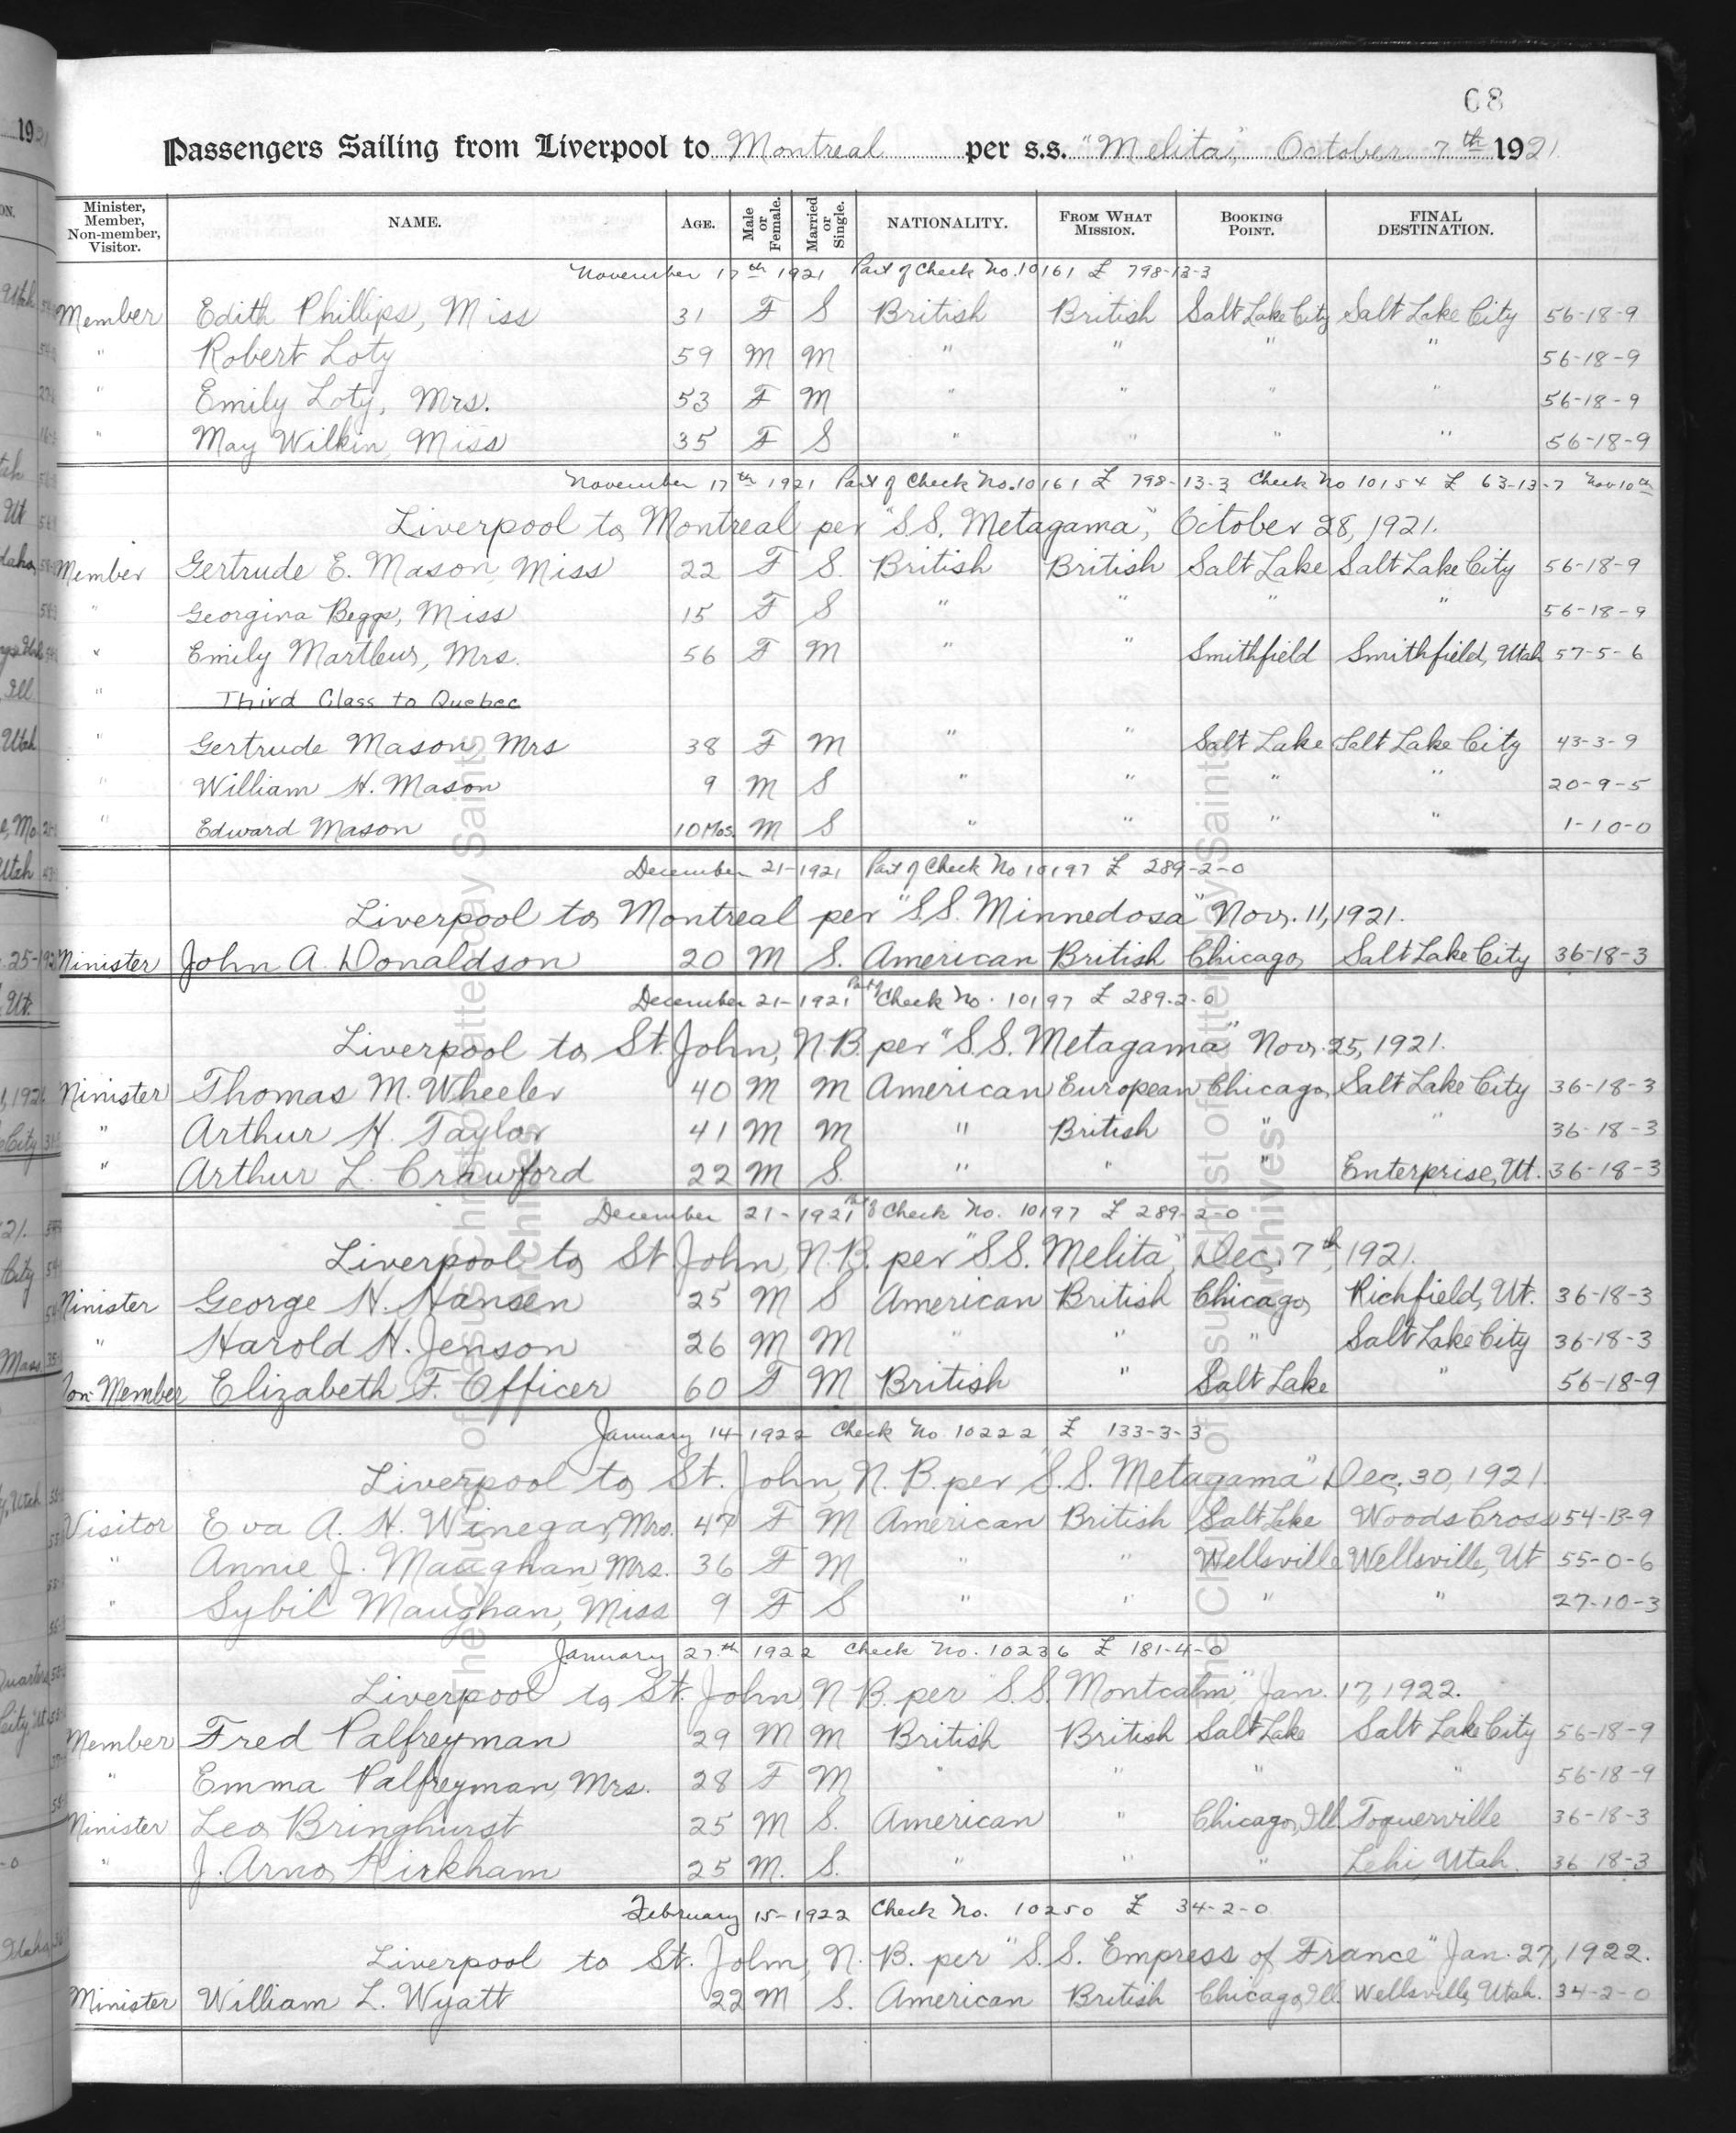 68
Passengers Sailing from Liverpool to Montreal per s.s. "Melita", October 7th 1921
Minister, Member, Non-member, Visitor. NAME. AGE. Male or Female. Married or Single. NATIONALITY. FROM WHAT MISSION. BOOKING POINT. FINAL DESTINATION.
November 17th 1921 Part of Check No. 10161 £ 798-13-3
Member Edith Phillips, Miss 31 F S British British Salt Lake City Salt Lake City 56-18-9
" Robert Loty 59 M M " " " " 56-18-9
" Emily Loty, Mrs. 53 F M " " " " 56-18-9
" May Wilkin, Miss 35 F S " " " " 56-18-9
November 17th 1921 Part of Check No. 10161 £ 798-13-3 Check No 10154 £ 63-13-7 Nov 10th
Liverpool to Montreal per "S.S. Metagama", October 28, 1921.
Member Gertrude E. Mason, Miss 22 F S. British British Salt Lake Salt Lake City 56-18-9
" Georgina Beggs, Miss 15 F S " " " " 56-18-9
" Emily Mrs. 56 F M " " Smithfield Smithfield, Utah 57-5-6
" Third Class to Quebec
" Gertrude Mason, Mrs 38 F M " " Salt Lake Salt Lake City 43-3-9
" William H. Mason 9 M S " " " " 20-9-5
" Edward Mason 10 Mos. M S " " " " 1-10-0
December 21-1921 Part of Check No 10197 £ 289-2-0
Liverpool to Montreal per "S.S. Minnedosa" Nov. 11, 1921.
Minister John A. Donaldson 20 M S. American British Chicago Salt Lake City 36-18-3
December 21-1921 Part of Check No. 10197 £ 289-2-0
Liverpool to St. John, N.B. per "S.S. Metagama" Nov. 25, 1921.
Minister Thomas M. Wheeler 40 M M American European Chicago Salt Lake City 36-18-3
" Arthur H. Taylor 41 M M " British " " 36-18-3
" Arthur L. Crawford 22 M S. " " " Enterprise, Ut. 36-18-3
December 21-1921 Part of Check No. 10197 £ 289-2-0
Liverpool to St John, N.B. per "S.S. Melita", Dec. 7th, 1921.
Minister George H. Hansen 25 M S American British Chicago Richfield, Ut. 36-18-3
" Harold H. Jenson 26 M M " " " Salt Lake City 36-18-3
Non-Member Elizabeth F. Officer 60 F M British " Salt Lake " 56-18-9
January 14-1922 Check No 10222 £ 133-3-3
Liverpool to St. John, N.B. per "S.S. Metagama" Dec. 30, 1921.
Visitor Eva A. H. Winegar, Mrs. 47 F M American British Salt Lake Woods Cross 54-13-9
" Annie J. Maughan, Mrs. 36 F M " " Wellsville Wellsville, Ut 55-0-6
" Sybil Maughan, Miss 9 F S " " " " 27-10-3
January 27th 1922 Check No. 10236 £ 181-4-0
Liverpool to St. John, N.B. per "S.S. Montcalm", Jan. 17, 1922.
Member Fred Palfreyman 29 M M British British Salt Lake Salt Lake City 56-18-9
" Emma Palfreyman, Mrs. 28 F M " " " " 56-18-9
Minister Leo Bringhurst 25 M S. American " Chicago, Ill. Toquerville 36-18-3
" J. Arno Kirkham 25 M. S. " " " Lehi, Utah. 36-18-3
February 15-1922 Check No. 10250 £ 34-2-0
Liverpool to St. John, N.B. per "S.S. Empress of France" Jan. 27, 1922.
Minister William L. Wyatt 22 M S. American British Chicago, Ill. Wellsville, Utah. 34-2-0
The Church of Jesus Christ of Latter-day Saints
Archives
The Church of Jesus Christ of Latter-day Saints
Archives